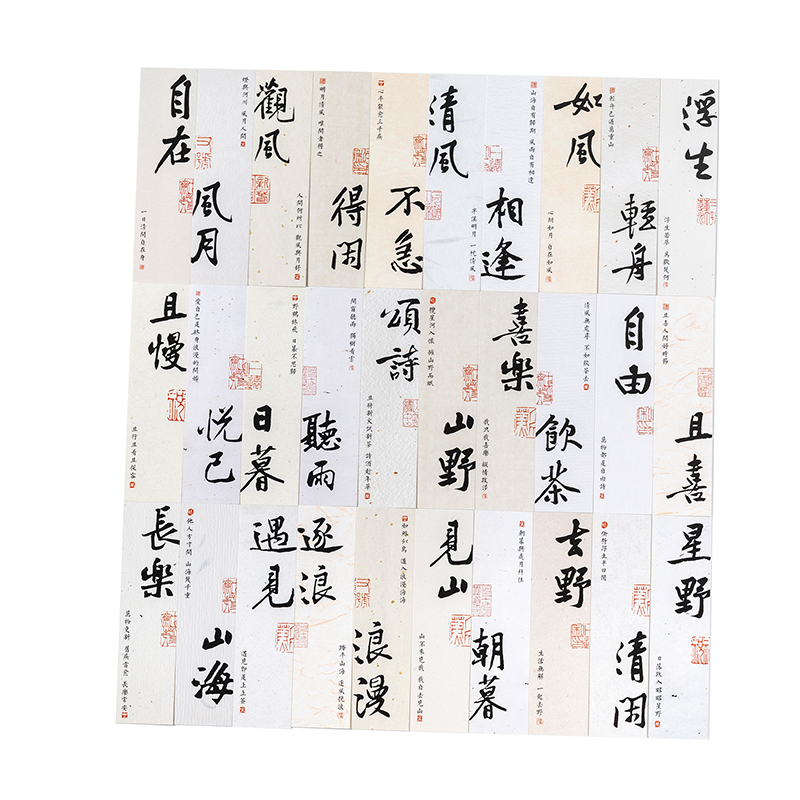 自在
一日清閒自在身
燈與河川 風月人間
風月
觀風
人間何所以 觀風與月舒
明月清風 唯閑者得之
得閑
心平能愈三千疾
不急
清風
半溪明月 一枕清風
山海自有歸期 風雨自有相逢
相逢
如風
心朗如月 自在如風
輕舟已過萬重山
輕舟
浮生
浮生若夢 為歡幾何
且慢
且行且看且從容
愛自己是終身浪漫的開始
悅己
野鶴 日暮不思歸
日暮
聽雨 看雲
聽雨
頌詩
且將新火試新茶 詩酒趁年華
攬星河入懷 擁山野而眠
山野
喜樂
我只我喜樂 縱情
清風無處尋 不如飲茶去
飲茶
自由
萬物都是自由詩
且喜人間好時節
且喜
長樂
萬物更新 舊疾當愈 長樂常安
他人方寸間 山海幾千重
山海
遇見
遇見即是上上簽
逐浪
踏平山海 逐風挽浪
浪漫
見山
山不來見我 我自去見山
朝暮與歲月并往
朝暮
去野
生活無解 一起去野
偷得浮生半日閒
清閑
星野
日落跌入昭昭星野